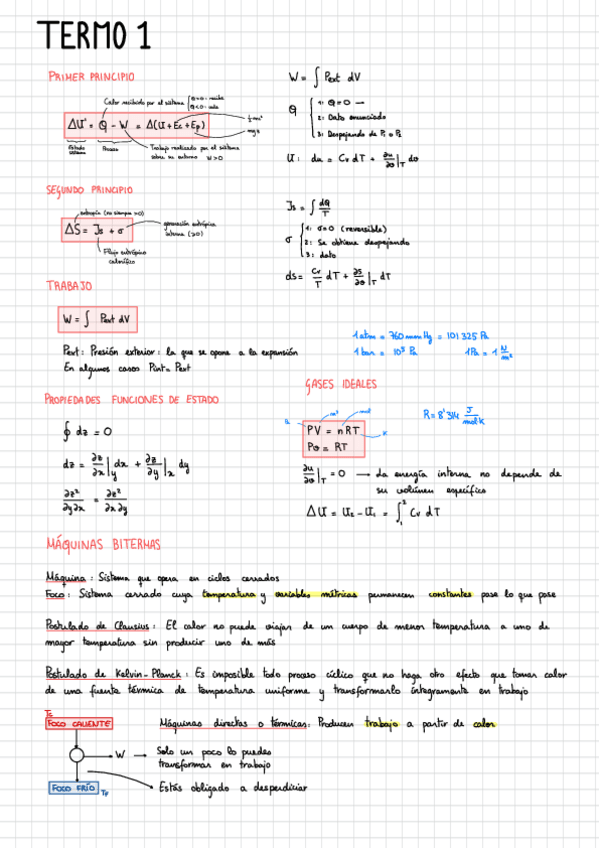 TERMO 1
PRIMER PRINCIPIO
Calor recibido por el sistema { Q>0: recibe
Q<0: cede
ΔU = Q - W = Δ(U+Ec+Ep)
½mv²
mgz
Estado sistema
Proceso
Trabajo realizado por el sistema
sobre su entorno W>0
W = ∫ Pext dV
Q { 1: Q=0
2: Dato enunciado
3: Despejando de 1º P
U: du = Cv dT + ∂u/∂v|T dv
SEGUNDO PRINCIPIO
entropía (no siempre >0)
ΔS = Js + σ
generación entrópica
interna (≥0)
Flujo entrópico
calorífico
Js = ∫ dQ/T
σ { 1: σ=0 (reversible)
2: Se obtiene despejando
3: dato
ds = Cv/T dT + ∂S/∂v|T dT
TRABAJO
W = ∫ Pext dV
Pext: Presión exterior: la que se opone a la expansión
En algunos casos Pint = Pext
1 atm = 760 mm Hg = 101325 Pa
1 bar = 10⁵ Pa 1Pa = 1 N/m²
PROPIEDADES FUNCIONES DE ESTADO
∮ dz = 0
dz = ∂z/∂x|y dx + ∂z/∂y|x dy
∂z²/∂y∂x = ∂z²/∂x∂y
GASES IDEALES
m³
mol
PV = nRT
K
Pv = RT
R = 8'314 J/mol·K
∂u/∂v|T = 0 → La energía interna no depende de
su volúmen específico
ΔU = U₂ - U₁ = ∫₁² Cv dT
MÁQUINAS BITERMAS
Máquina: Sistema que opera en ciclos cerrados
Foco: Sistema cerrado cuya temperatura y variables métricas permanecen constantes pase lo que pase
Postulado de Clausius: El calor no puede viajar de un cuerpo de menor temperatura a uno de
mayor temperatura sin producir uno de más
Postulado de Kelvin-Planck: Es imposible todo proceso cíclico que no haga otro efecto que tomar calor
de una fuente térmica de temperatura uniforme y transformarlo íntegramente en trabajo
Tc
FOCO CALIENTE
Máquinas directas o térmicas: Producen trabajo a partir de calor
W → Solo un poco lo puedes
transformar en trabajo
FOCO FRÍO TF
Estás obligado a desperdiciar